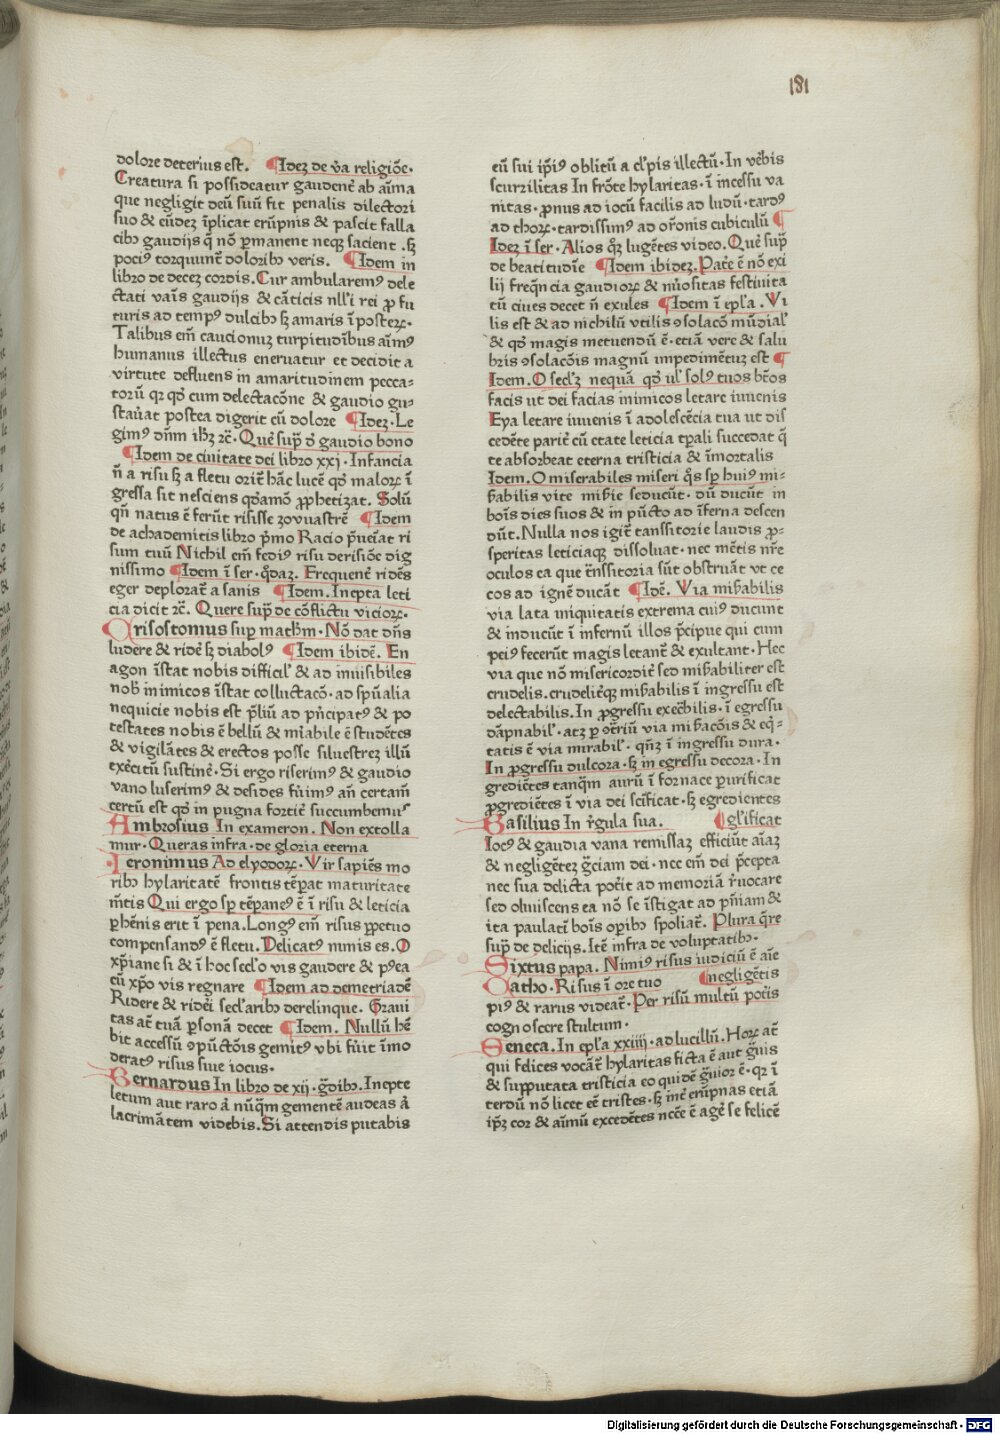 181
dolore deterius est. ¶Ideꝫ de ṽa religiõe.
Creatura si possideatur gaudent᷑ ab aĩma
que negligit deũ suũ fit penalis dilectori
suo & eũdeꝫ ĩplicat erũpnis & pascit falla
cibꝫ gaudijs q̃ nõ ꝑmanent neqꝫ saciẽt .sꝫ
pociꝰ torquunt᷑ doloribꝫ veris. ¶Idem in
libro de deceꝫ cordis. Cur ambularemꝰ dele
ctati vaĩs gaudijs & cãticis nll̃i rei ꝓ fu
turis ad tempꝰ dulcibꝫ sꝫ amaris ĩ posteꝝ.
Talibus em̃ caucionuꝫ turpitudĩbus aĩmꝰ
humanus illectus eneruatur et decidit a
virtute defluens in amaritudinem pecca-
torũ qꝛ qd̕ cum delectacõne & gaudio gu-
stau̾at postea digerit cũ dolore ¶Ideꝫ. Le
gimꝰ dñm ibꝫ ꝛc̃. Que᷑ sup̃ d̕ gaudio bono
¶Idem de ciuitate dei libro xxj. Infancia
ñ a risu sꝫ a fletu orit᷑ hãc lucẽ qd̕ maloꝝ ĩ
gressa sit nesciens qd̕amõ ꝓphetizat. Solũ
qñ natus ẽ ferũt risisse zovuastrẽ ¶Idem
de achademicis libro pͥmo Racio pͥueĩat ri
sum tuũ Nichil em̃ fediꝰ risu derisiõe dig
nissimo ¶Idem ĩ ser. qͥdaꝫ. Frequent᷑ ridẽs
eger deplorat᷑ a sanis ¶Idem. Inepta leti
cia dicit ꝛc̃. Quere sup̃ de cõflictu vicioꝝ.
Crisostomus sup math̃m. Nõ dat dñs
ludere & ride᷑ sꝫ diabolꝰ ¶Idem ibidẽ. En
agon ĩstat nobis difficil̕ & ad inuisibiles
nob̕ inimicos ĩstat colluctacõ. ad sp̃ualia
nequicie nobis est p̃liũ ad pͥncipatꝰ & po
testates nobis ẽ bellũ & mĩabile ẽ studẽtes
& vigilãtes & erectos posse siluestreꝫ illũ
exe᷑citũ sustine᷑. Si ergo riserimꝰ & gaudio
vano luserimꝰ & desides fu̾imꝰ añ certam̃
certũ est qd̕ in pugna fortit᷑ succumbemuꝰ
Ambrosius In exameron. Non extolla
mur. Queras infra. de gloria eterna
Ieronimus Ad elyodoꝝ. Vir sapiẽs mo
ribꝫ hylaritatẽ frontis tẽꝑat maturitate
mẽtis Qui ergo sꝑ tẽꝑaneꝰ ẽ ĩ risu & leticia
ꝑhẽnis erit ĩ pena. Longꝰ em̃ risus ꝑpetuo
compensandꝰ ẽ fletu. Delicatꝰ nimis es. O
xp̃iane si & ĩ hoc scl̕o vis gaudere & pꝰea
cũ xp̃o vis regnare ¶Idem ad demetriadẽ
Ridere & ride᷑i scl̕aribꝫ derelinque. Graui
tas at᷑ tuã ꝑsonã decet ¶Idem. Nullũ hẽ
bit accessũ ꝯpũctõis gemitꝰ vbi fu̾it ĩmo
deratꝰ risus siue iocus.
Bernardus In libro de xij. gͣdibꝫ. Inepte
letum aut raro aͥ nũqͣm gementẽ audeas aͥ
lacrimãtem videbis. Si attendis putabis
eũ sui ip̃iꝰ oblitũ a cl̕pis illectũ. In ve᷑bis
scurrilitas In frõte hylaritas. ĩ incessu va
nitas. ꝓnus ad iocũ facilis ad ludũ. tardꝰ
ad thoꝝ. tardissimꝰ ad or̃onis cubiculũ ¶
Ideꝫ ĩ ser. Alios qͥꝫ lugẽtes video. Que᷑ sup̃
de beatitudĩe ¶Idem ibideꝫ. Pat᷑e ẽ nõ exi
lij freq̃ncia gaudioꝝ & nũositas festiuita
tũ ciues decet ñ exules ¶Idem ĩ epl̕a. Vi
lis est & ad nichilũ vtilis ꝯsolacõ mũdial̕
& qd̕ magis metuendũ ẽ. etiã vere & salu
bris ꝯsolacõis magnũ impedimẽtuꝫ est ¶
Idem. O scl̕ꝫ nequã qd̕ ul̕ solꝰ tuos bt̃os
facis ut dei facias inimicos letare iuuenis
Eya letare iuuenis ĩ adolescẽcia tua ut dis
cedẽte parit᷑ cũ etate leticia tꝑali succedat q̃
te absorbeat eterna tristicia & ĩmortalis
Idem. O miserabiles miseri qͦs sꝑ huiꝰ mi-
ẜabilis vite miẜie seducũt. dũ ducũt in
boĩs dies suos & in pũcto ad ĩferna descen
dũt. Nulla nos igit᷑ tanssitorie laudis ꝓ-
speritas leticiaqꝫ dissoluat. nec mẽtis nr̃e
oculos ea que t᷑nssitoria sũt obstruãt vt ce
cos ad ignẽ ducãt ¶Idẽ. Via miẜabilis
via lata iniquitatis extrema cuiꝰ ducunt
& inducũt ĩ infernũ illos p̃cipue qui cum
peiꝰ fecerũt magis letant᷑ & exultant. Hec
via que nõ misericordit᷑ sed miẜabiliter est
crudelis. crudelit᷑qꝫ miẜabilis ĩ ingressu est
delectabilis. In ꝓgressu exec᷑bilis. ĩ egressu
dãpnabil̕. atꝫ ꝑ ot᷑riũ via miẜacõis & eqͥ-
tatis ẽ via mirabil̕. qm̃ꝫ ĩ ingressu dura.
In ꝓgressu dulcora. sꝫ in egressu decora. In
gredi᷑tes tanqͣm aurũ ĩ fornace ꝑurificat
ꝓgrediẽtes ĩ via dei scĩficat. sꝫ egredientes
Basilius In r᷑gula sua. ¶gl̕ificat
Iocꝰ & gaudia vana remissaꝫ efficiũt aĩaꝫ
& negligẽteꝫ gͣciam dei. nec em̃ dei p̃cepta
nec sua delicta pot᷑it ad memoriã r᷑uocare
sed obliuiscens ea nõ se ĩstigat ad pñiam &
ita paulatĩ boĩs oꝑibꝫ spoliat᷑. Plura q̃re
sup̃ de delicijs. Itẽ infra de voluptatibꝫ.
Sixtus papa. Nimiꝰ risus iudiciũ ẽ aĩe
Catho. Risus ĩ ore tuo ¶negligẽtis
piꝰ & rarus videat᷑. Per risũ multũ pot᷑is
cognoscere stultum.
Seneca. In epl̕a xxiiij. ad lucillũ. Hoꝝ at᷑
qui felices vocãt᷑ hylaritas ficta ẽ aut gͣuis
& supputata tristicia eo quidẽ gͣuior ẽ. qꝛ ĩ
terdũ nõ licet eẽ tristes. sꝫ int᷑ erũpnas etiã
ip̃ꝫ cor & aĩmũ excedẽtes nec̃e ẽ age᷑ se felicẽ
Digitalisierung gefördert durch die Deutsche Forschungsgemeinschaft - DFG